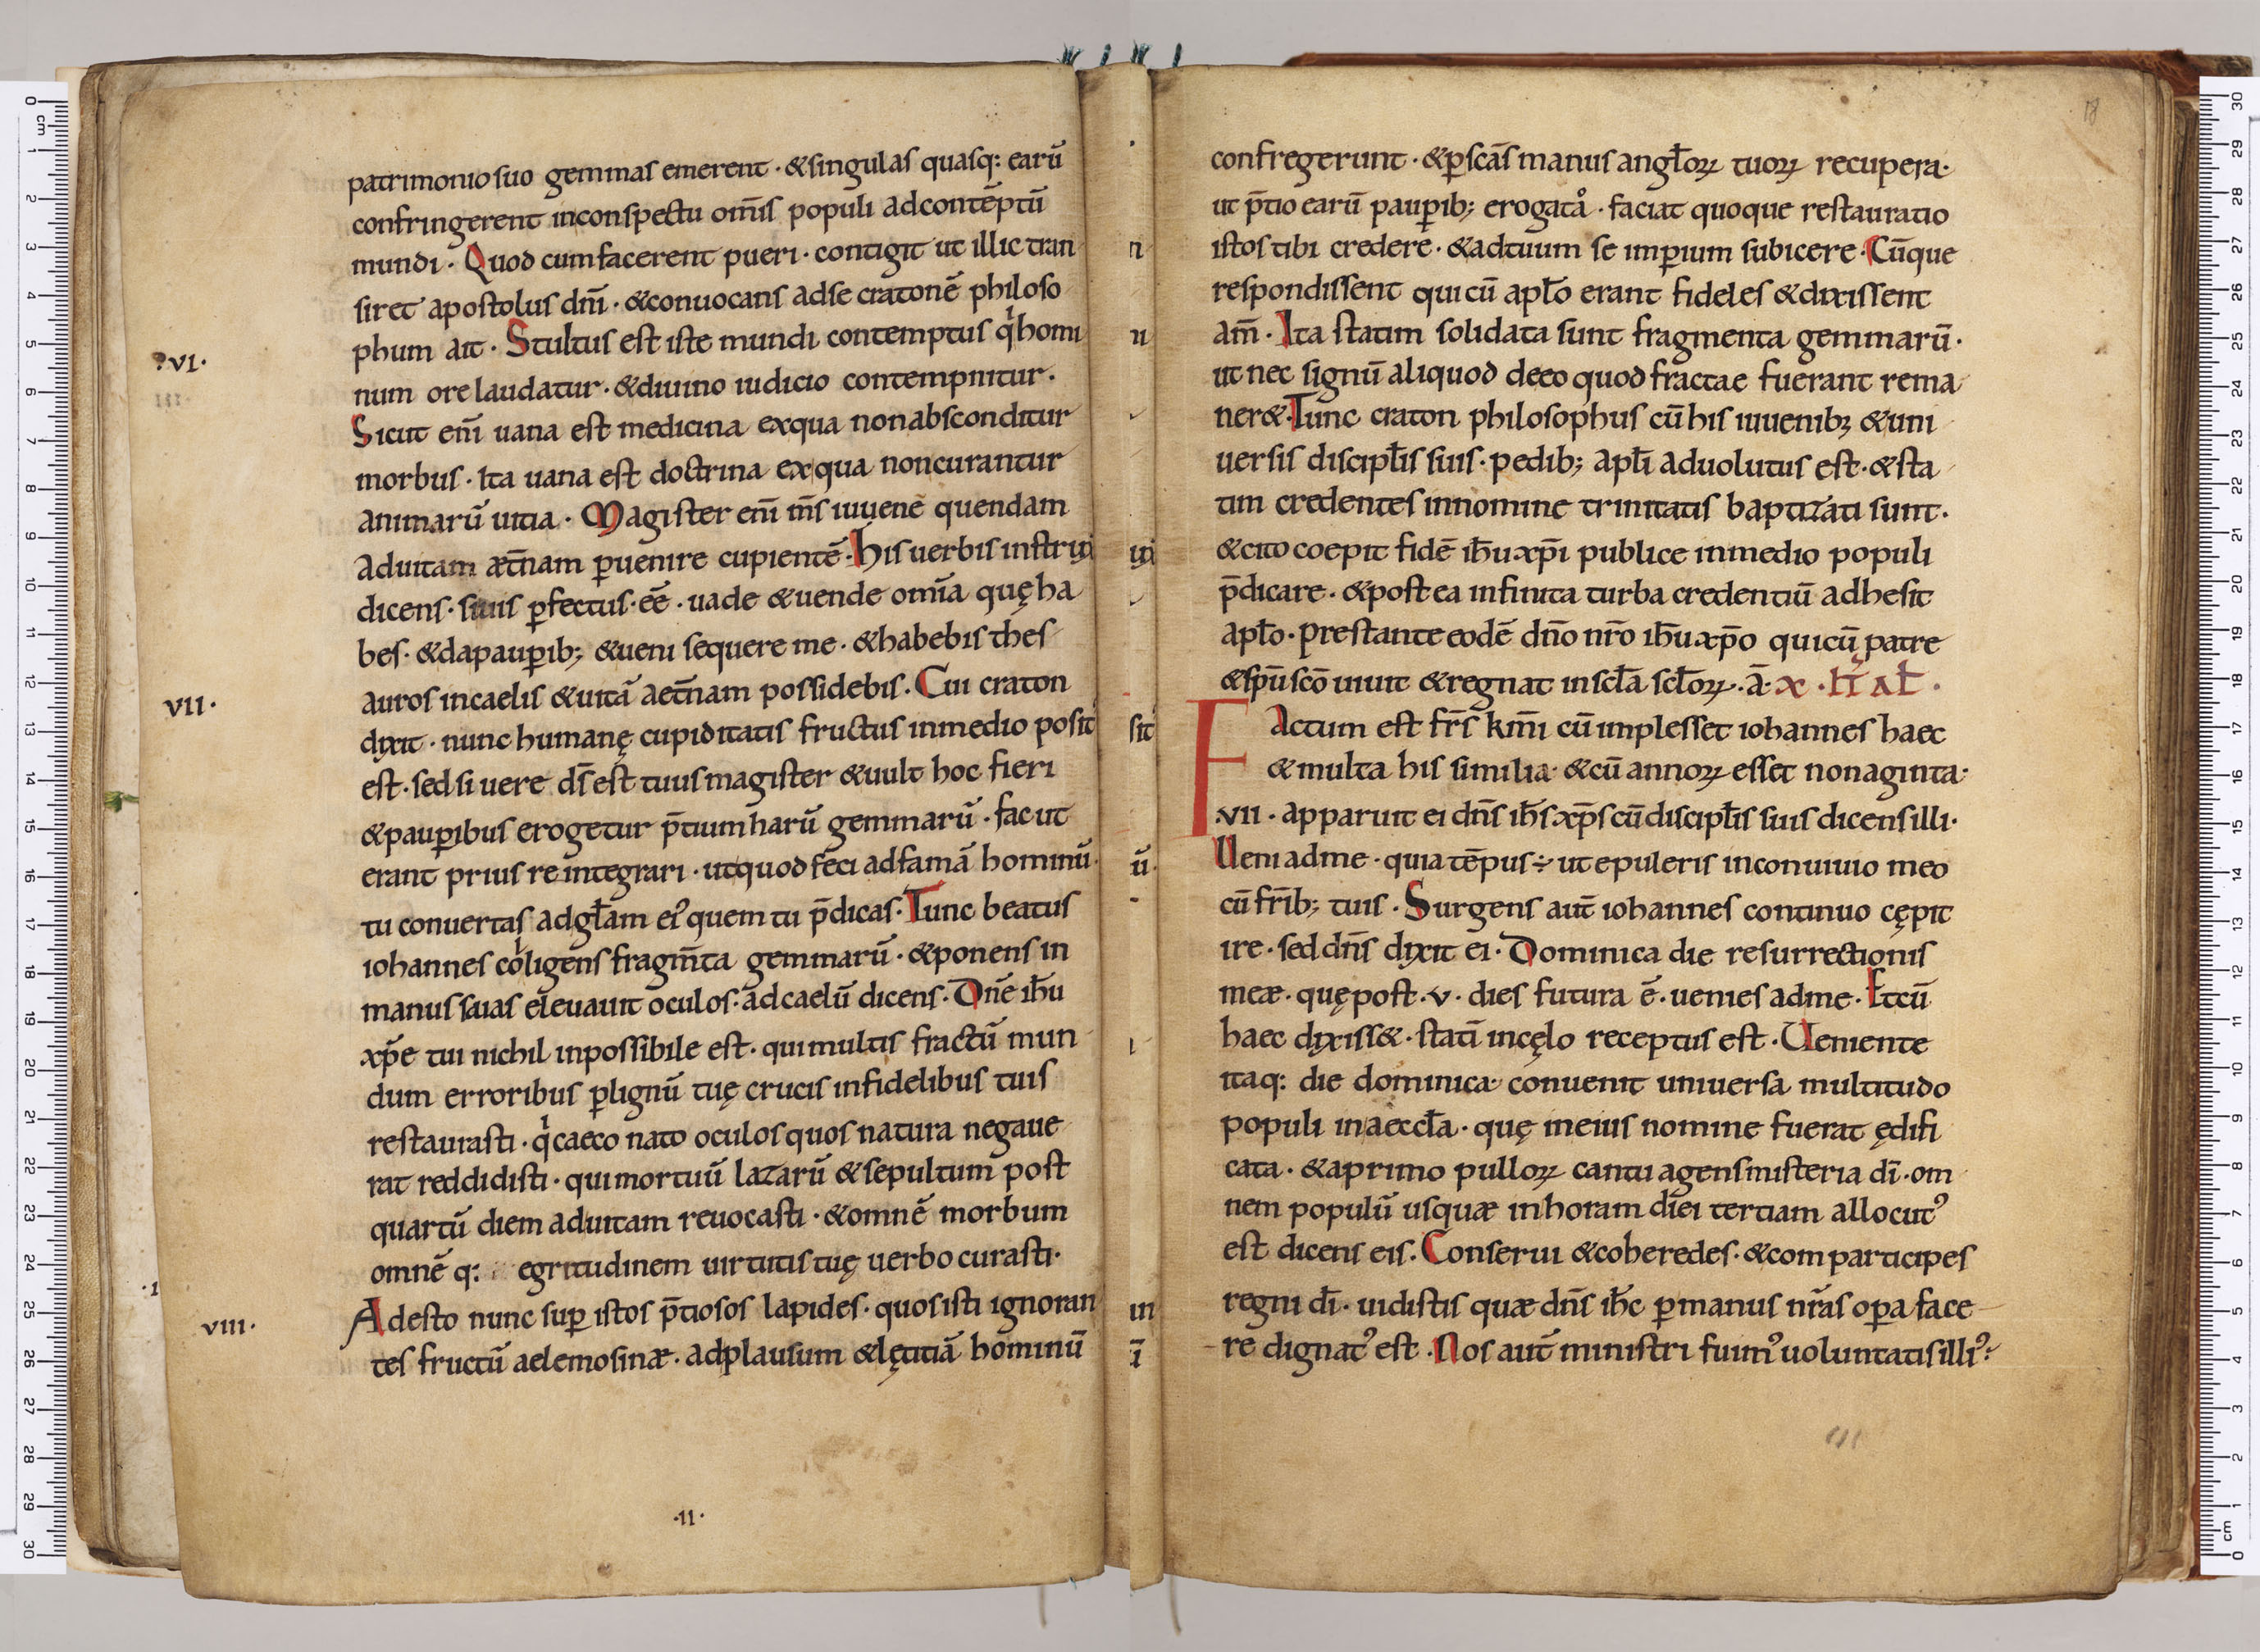 patrimonio suo gemmas emerent · & singulas quasq: earū
confringerent inconspectu om̄s populi adcontēptū
mundi · Quod cum facerent pueri · contigit ut illic tran
siret apostolus dn̄i · & conuocans adse cratonē philoso
phum ait · Stultus est iste mundi contemptus q homi
?VI·
num ore laudatur · & diuino iudicio contempnitur ·
III·
Sicut en̄i uana est medicina exqua non absconditur
morbus · Ita uana est doctrina exqua non curantur
animarū uitia · Magister en̄i m̄s iuuenē quendam
aduitam æt̄nam ꝑuenire cupientē · His uerbis instruxit
dicens · si uis ꝑfectus · eē · uade & uende om̄ia quę ha
bes · & da pauꝑib; & ueni sequere me · & habebis thes
auros incaelis & uitā aet̄nam possidebis · Cui craton
VII·
dixit · nunc humanę cupiditatis fructus inmedio posit
est · sed si uere ds̄ est tuus magister & uult hoc fieri
& pauꝑibus erogetur p̄tium harū gemmarū · fac ut
erant prius reintegrari · ut quod feci adfamā hominū ·
tu conuertas adgłam eiꝰ quem tu p̄dicas · Tunc beatus
iohannes colligens fragm̄ta gemmarū · & ponens in
manus suas eleuauit oculos · adcaelū dicens · Dn̄e ihū
xp̄e tui nichil inpossibile est · qui multis fractū mun
dum erroribus ꝑlignū tuę crucis infidelibus tuis
restaurasti · q caeco nato oculos quos natura negaue
rat reddidisti · qui mortuū lazarū & sepultum post
quartū diem aduitam reuocasti · & omnē morbum
omnē q: egritudinem uirtutis tuę uerbo curasti ·
Adesto nunc suꝑ istos p̄tiosos lapides · quos isti ignoran
VIII·
tes fructū aelemosinæ · adplausum & lętitiā hominū
·II·
18
confregerunt · & ꝑ scās manus angłoꝝ tuoꝝ recupera ·
ut p̄tio earū pauꝑib; erogato · faciat quoque restauratio
istos tibi credere · & adtuum se imꝑium subicere · Cūque
respondissent qui cū apło erant fideles & dixissent
am̄ · Ita statim solidata sunt fragmenta gemmarū ·
ut nec signū aliquod deeo quod fractae fuerant rema
ner& · Tunc craton philosophus cū his iuuenibꝫ & uni
uersis discipłis suis · pedib; apłi aduolutus est · & sta
tim credentes innomine trinitatis baptizati sunt ·
& cito coepit fidē ihū xp̄i publice inmedio populi
p̄dicare · & postea infinita turba credentiū adhesit
apło · prestante eodē dn̄o nr̄o ihū xp̄o qui cū patre
& sp̄u scō uiuit & regnat in scła scłoꝝ · ā ·
Factum est fr̄s km̄i cū implesset iohannes haec
& multa his similia · & cū annoꝝ esset nonaginta ·
·VII · apparuit ei dn̄s ihs̄ xp̄s cū discipłis suis dicens illi ·
Ueni adme · quia tēpus ÷ ut epuleris inconuiuio meo
cū fr̄ib; tuis · Surgens aut̄ iohannes continuo cępit
ire · sed dn̄s dixit ei · Dominica die resurrectionis
meæ · quę post · v · dies futura ē · uenies adme · Et cū
haec dixiss& · statī incęlo receptus est · Ueniente
itaq: die dominica · conuenit uniuersa multitudo
populi inaeccła · quę ineius nomine fuerat ędifi
cata · & aprimo pulloꝝ cantu agens misteria dī · om
nem populū usquæ inhoram diei tertiam allocutꝰ
est dicens eis · Conserui & coheredes · & comparticipes
regni dī · uidistis quæ dn̄s ihc̄ ꝑ manus nr̄as oꝑa face
re dignatꝰ est · Nos aut̄ ministri fuimꝰ uoluntatis illiꝰ ·